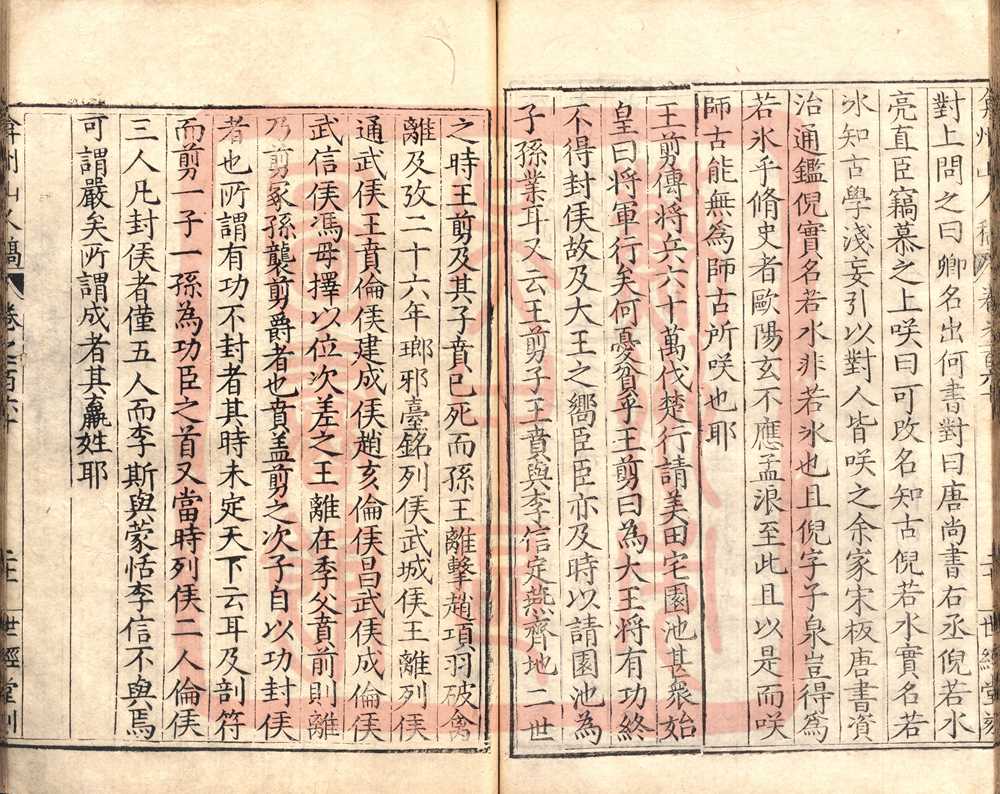 對上問之曰卿名出何書對曰唐尚書右丞倪若水
亮直臣竊慕之上咲曰可改名知古倪若水實名若
冰知古學淺妄引以對人皆咲之余家宋板唐書資
治通鑑倪實名若水非若冰也且倪字子泉豈得為
若氷乎脩史者歐陽玄不應孟浪至此且以是而咲
師古能無為師古所咲也耶
王剪傳將兵六十萬伐楚行請美田宅園池甚衆始
皇曰將軍行矣何憂貧乎王剪曰為大王將有功終
不得封侯故及大王之嚮臣臣亦及時以請園池為
子孫業耳又云王剪子王賁與李信定燕齊地二世
之時王剪及其子賁已死而孫王離擊趙項羽破禽
離及攷二十六年瑯邪臺銘列侯武城侯王離列侯
通武侯王賁倫侯建成侯趙亥倫侯昌武侯成倫侯
武信侯馮毋擇以位次差之王離在季父賁前則離
乃剪冢孫襲剪爵者也賁盖剪之次子自以功封侯
者也所謂有功不封者其時未定天下云耳及剖符
而剪一子一孫為功臣之首又當時列侯二人倫侯
三人凡封侯者僅五人而李斯與蒙恬李信不與焉
可謂嚴矣所謂成者其嬴姓耶
弇州山人稿 卷之百六十 世經堂刻